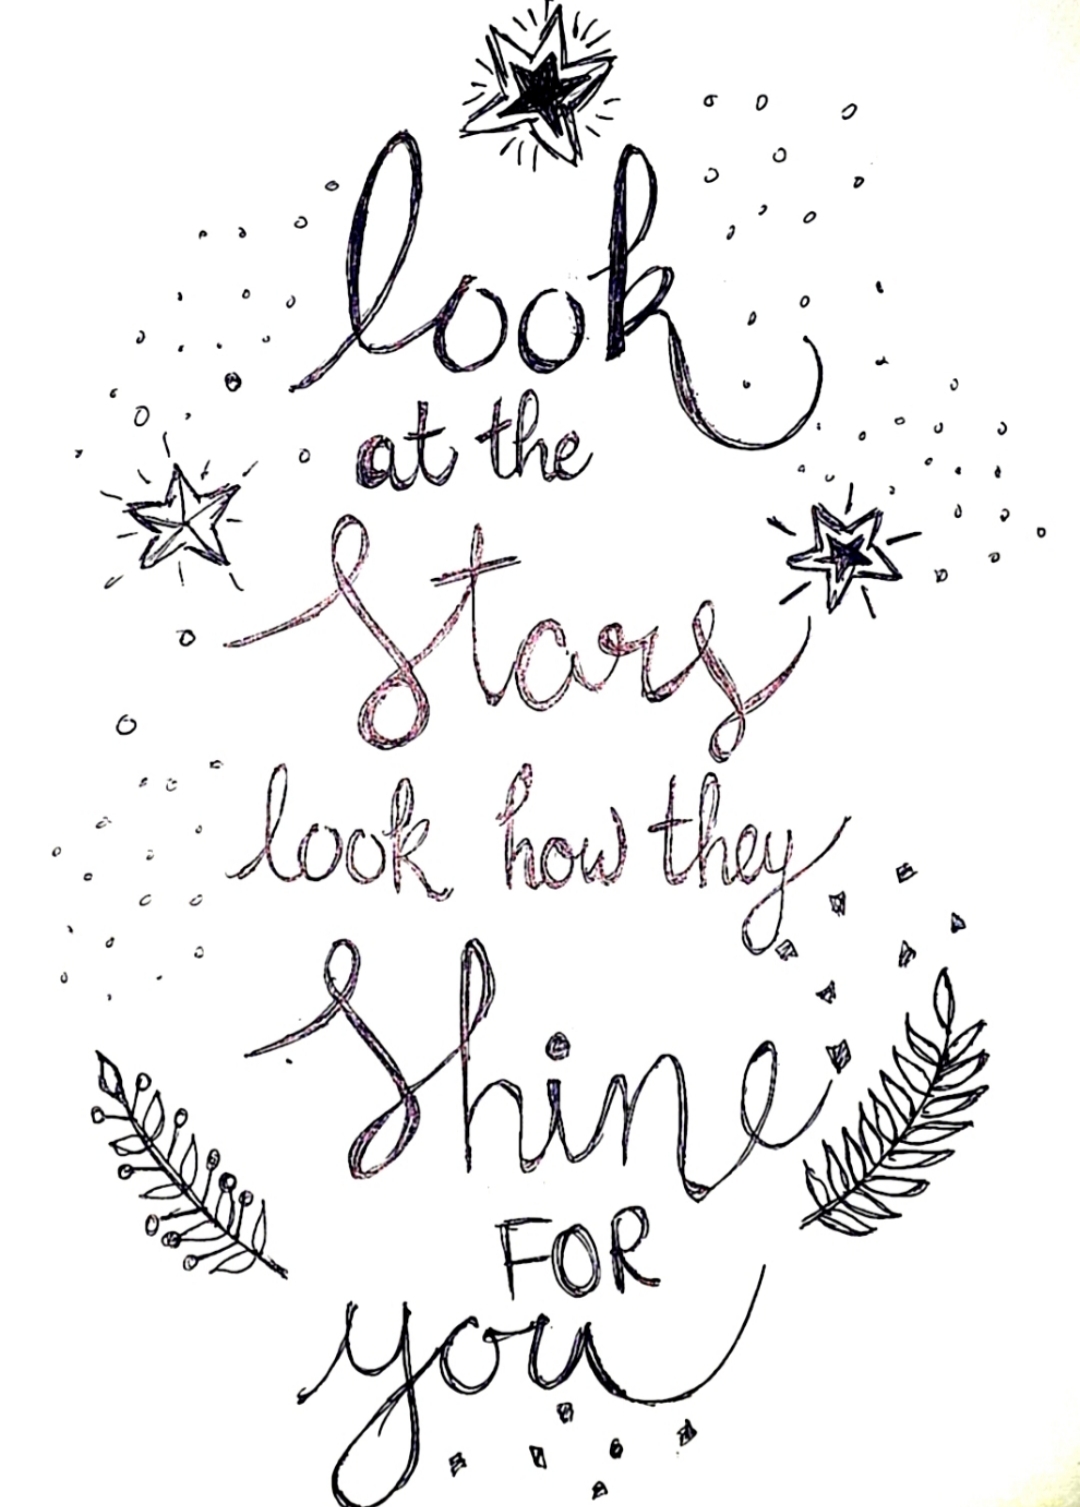 look
at the
Stars
look how they
Shine
FOR
you